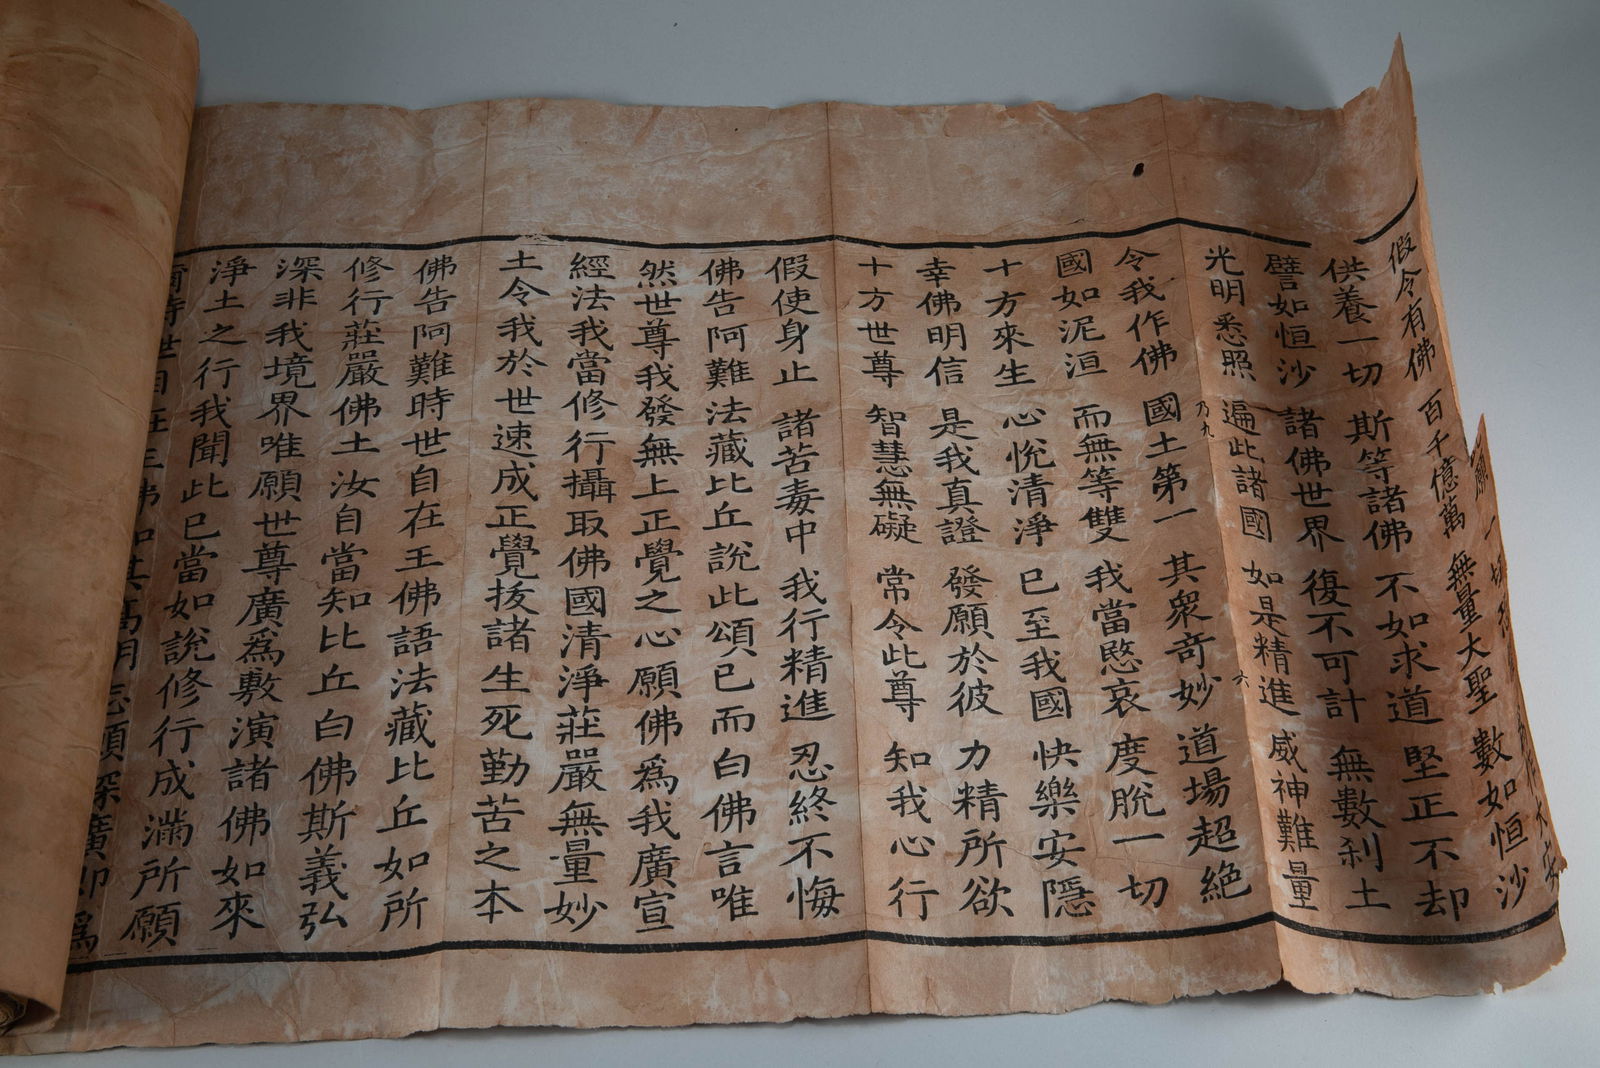 願 一切恐
大安
假令有佛 百千億萬 無量大聖 數如恒沙
供養一切 斯等諸佛 不如求道 堅正不却
譬如恒沙 諸佛世界 復不可計 無數刹土
光明悉照 遍此諸國 如是精進 威神難量
乃九 六
令我作佛 國土第一 其衆竒妙 道場超絶
國如泥洹 而無等雙 我當愍哀 度脫一切
十方來生 心悅清淨 已至我國 快樂安隱
幸佛明信 是我真證 發願於彼 力精所欲
十方世尊 智慧無礙 常令此尊 知我心行
假使身止 諸苦毒中 我行精進 忍終不悔
佛告阿難法藏比丘說此頌已而白佛言唯
然世尊我發無上正覺之心願佛為我廣宣
經法我當修行攝取佛國清淨莊嚴無量妙
土令我於世速成正覺拔諸生死勤苦之本
佛告阿難時世自在王佛語法藏比丘如所
修行莊嚴佛土汝自當知比丘白佛斯義弘
深非我境界唯願世尊廣為敷演諸佛如來
淨土之行我聞此已當如說修行成滿所願
爾時世自在王佛知其高明志願深廣即為